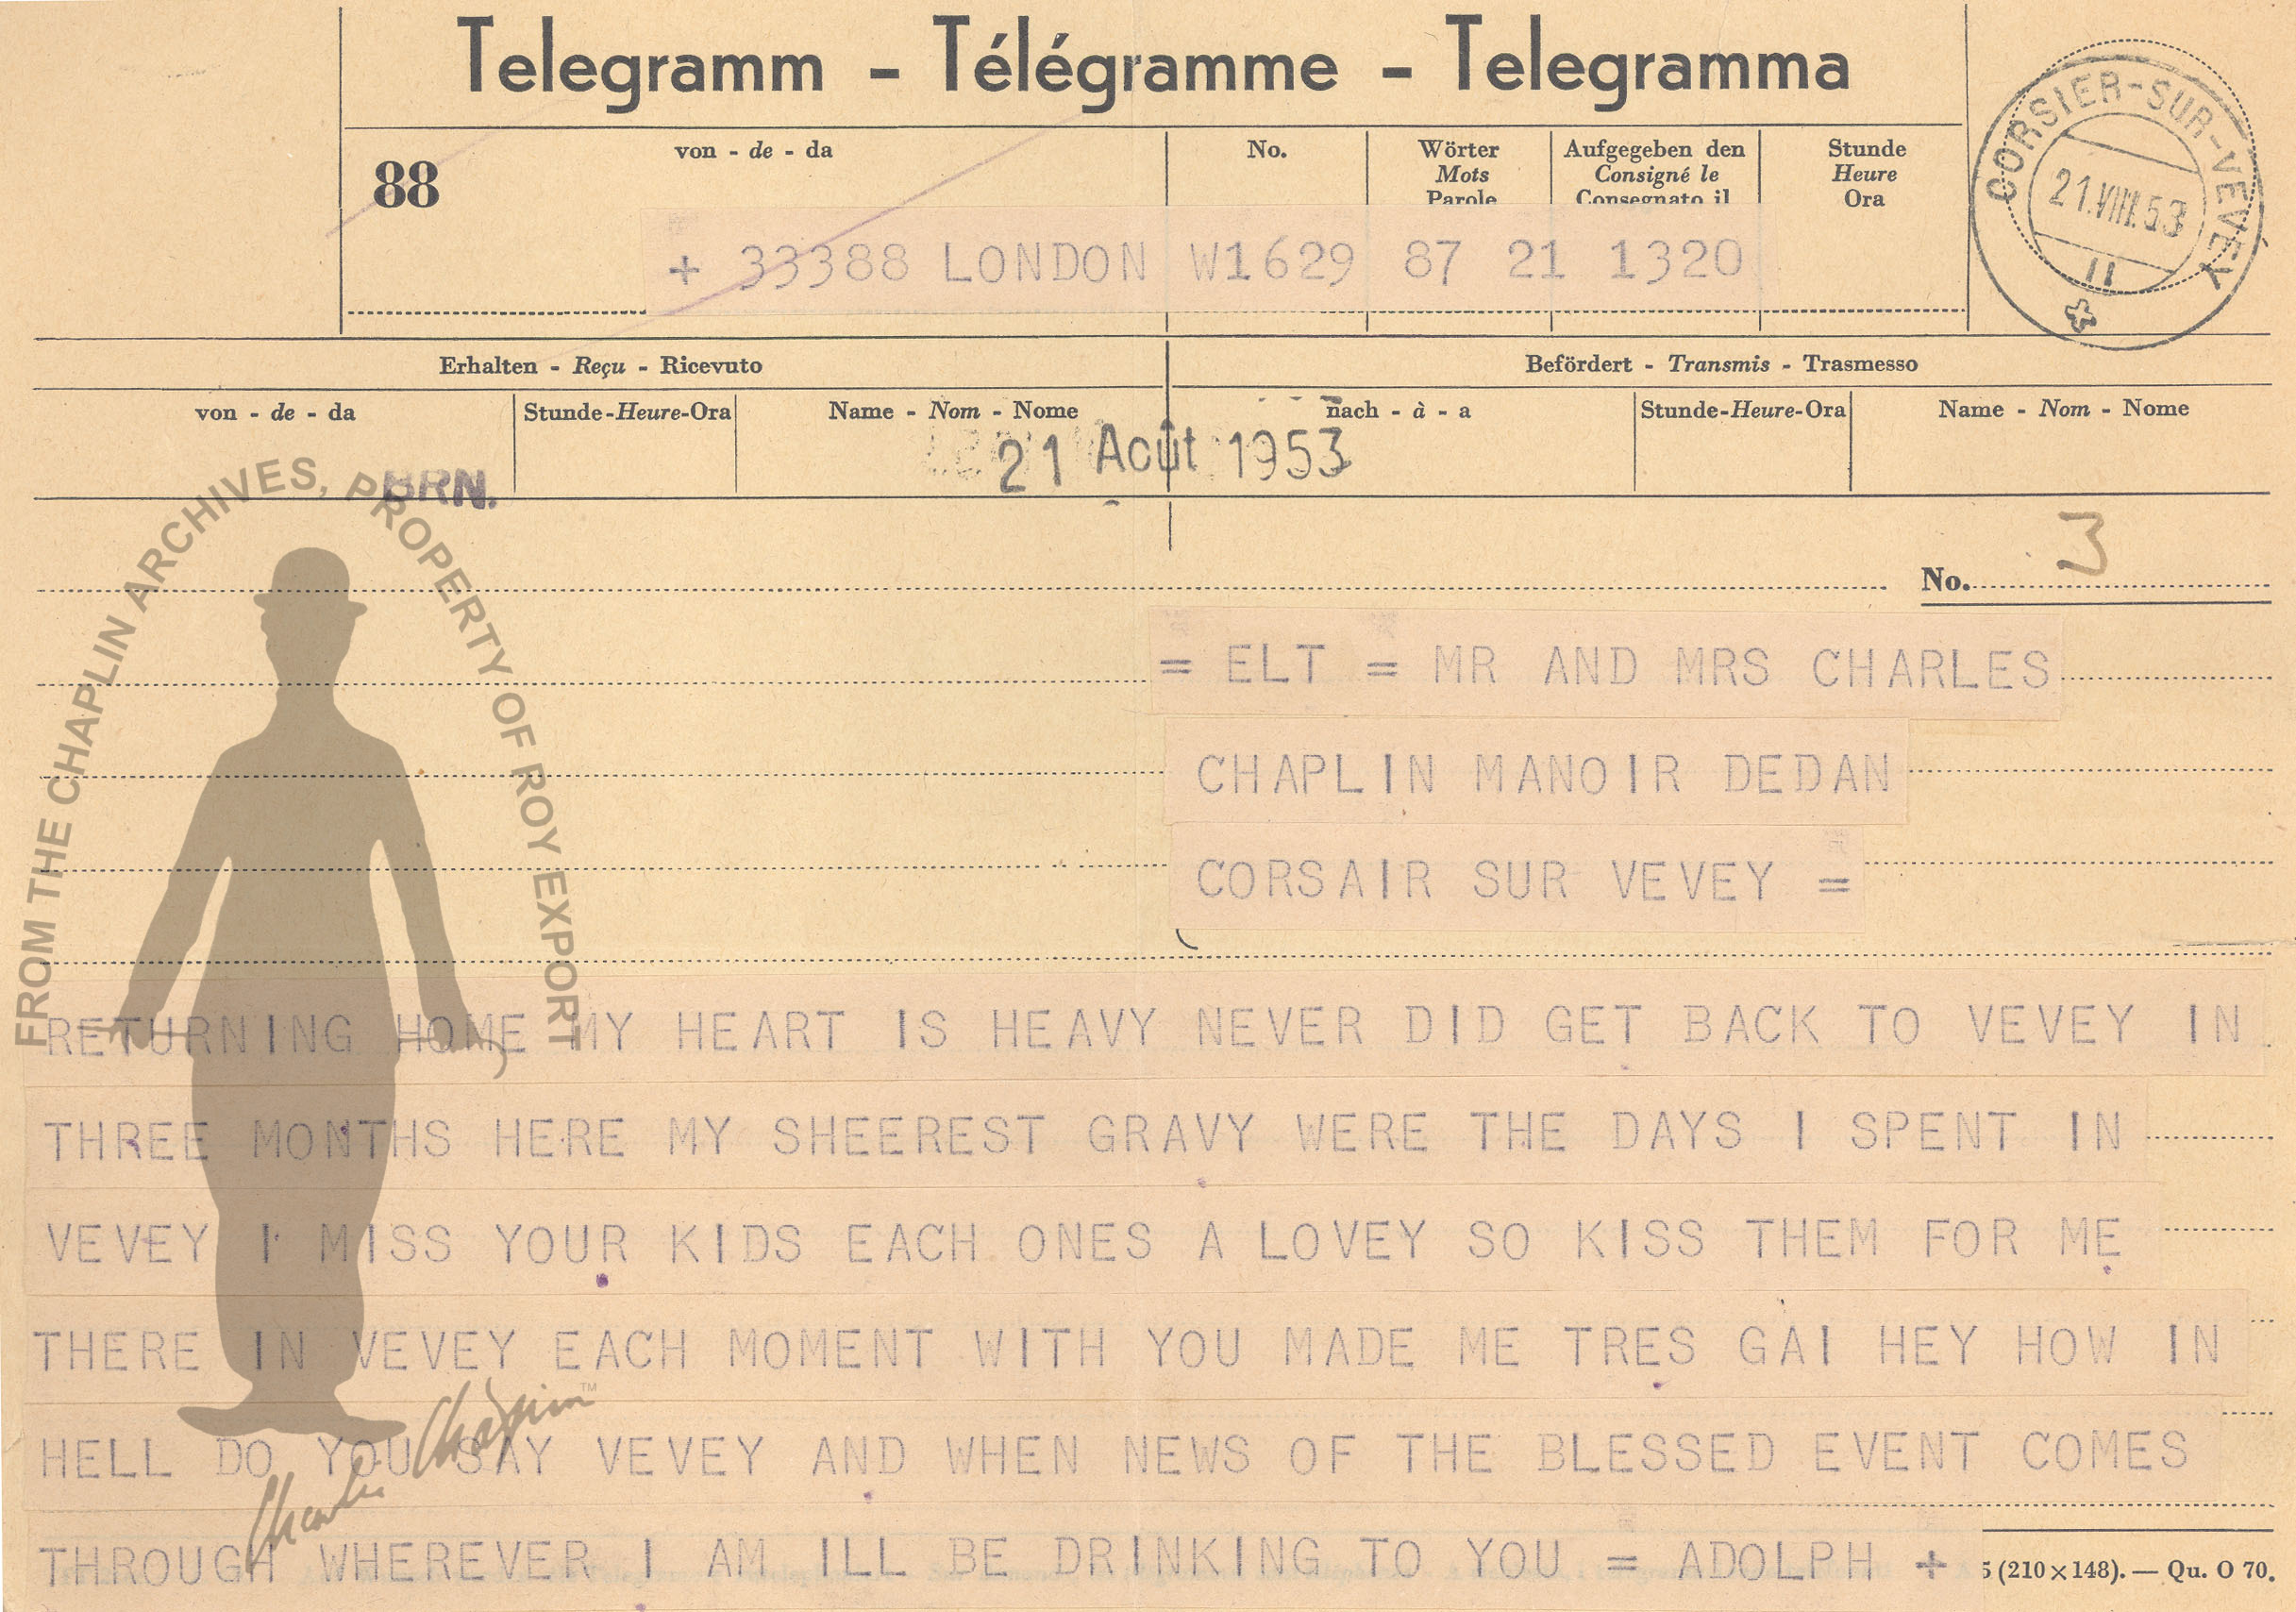 Telegramm - Télégramme - Telegramma
88
von - de - da
No.
Wörter
Mots
Parole
Aufgegeben den
Consigné le
Consegnato il
Stunde
Heure
Ora
CORSIER-SUR-VEVEY
21.VIII.53
11
+ 33388 LONDON W1629 87 21 1320
Erhalten - Reçu - Ricevuto
Befördert - Transmis - Trasmesso
von - de - da
Stunde-Heure-Ora
Name - Nom - Nome
nach - à - a
Stunde-Heure-Ora
Name - Nom - Nome
BRN.
21 Août 1953
No. 3
FROM THE CHAPLIN ARCHIVES, PROPERTY OF ROY EXPORT
= ELT = MR AND MRS CHARLES
CHAPLIN MANOIR DEDAN
CORSAIR SUR VEVEY =
RETURNING HOME MY HEART IS HEAVY NEVER DID GET BACK TO VEVEY IN
THREE MONTHS HERE MY SHEEREST GRAVY WERE THE DAYS I SPENT IN
VEVEY I MISS YOUR KIDS EACH ONES A LOVEY SO KISS THEM FOR ME
THERE IN VEVEY EACH MOMENT WITH YOU MADE ME TRES GAI HEY HOW IN
HELL DO YOU SAY VEVEY AND WHEN NEWS OF THE BLESSED EVENT COMES
THROUGH WHEREVER I AM ILL BE DRINKING TO YOU = ADOLPH +
Charlie Chaplin™
5 (210×148). — Qu. O 70.